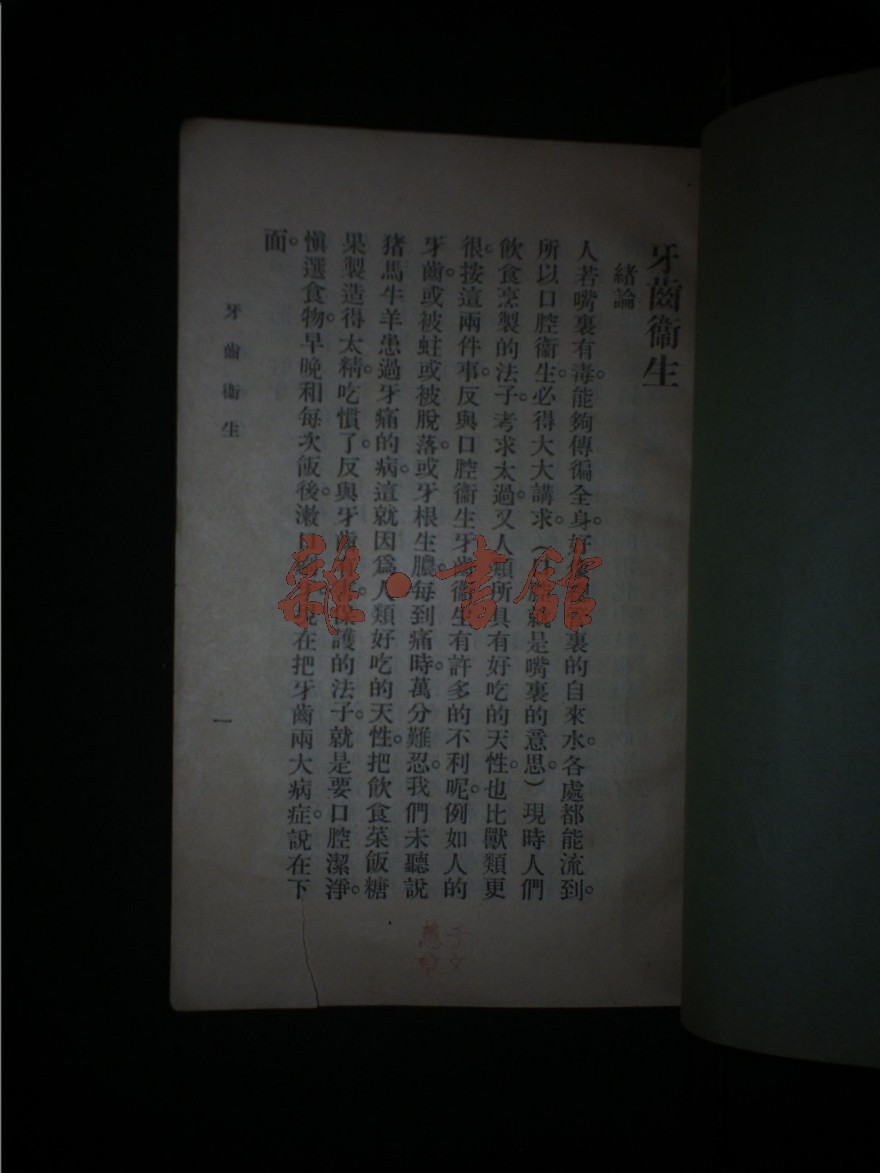 牙齒衞生
緒論
人若嘴裏有毒。能夠傳徧全身。好 裏的自來水。各處都能流到。
所以口腔衞生。必得大大講求。（口腔就是嘴裏的意思。）現時人們
飲食烹製的法子。考求太過。又人類所具有好吃的天性。也比獸類更
很。按這兩件事。反與口腔衞生牙齒衞生有許多的不利呢。例如人的
牙齒。或被蛀或被脫落。或牙根生膿。每到痛時。萬分難忍。我們未聽說
猪馬牛羊患過牙痛的病。這就因爲人類好吃的天性。把飲食菜飯糖
果製造得太精。吃慣了。反與牙齒 保護的法子。就是要口腔潔淨。
愼選食物。早晚和每次飯後。漱口 說在把牙齒兩大病症。說在下
面。
牙齒衞生
一
雜·書館